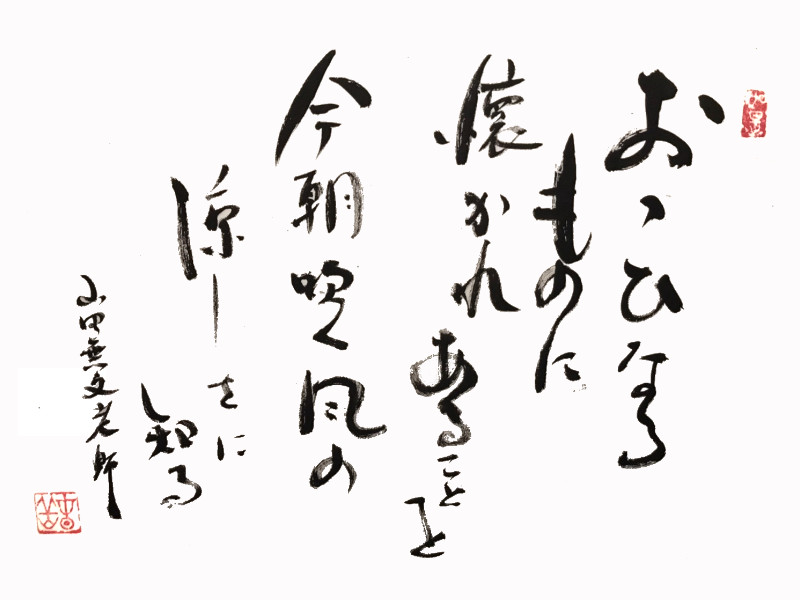 おゝひなる
ものに
懐かれあることを
今朝吹く風の
涼しさに
知る
山田無文老師